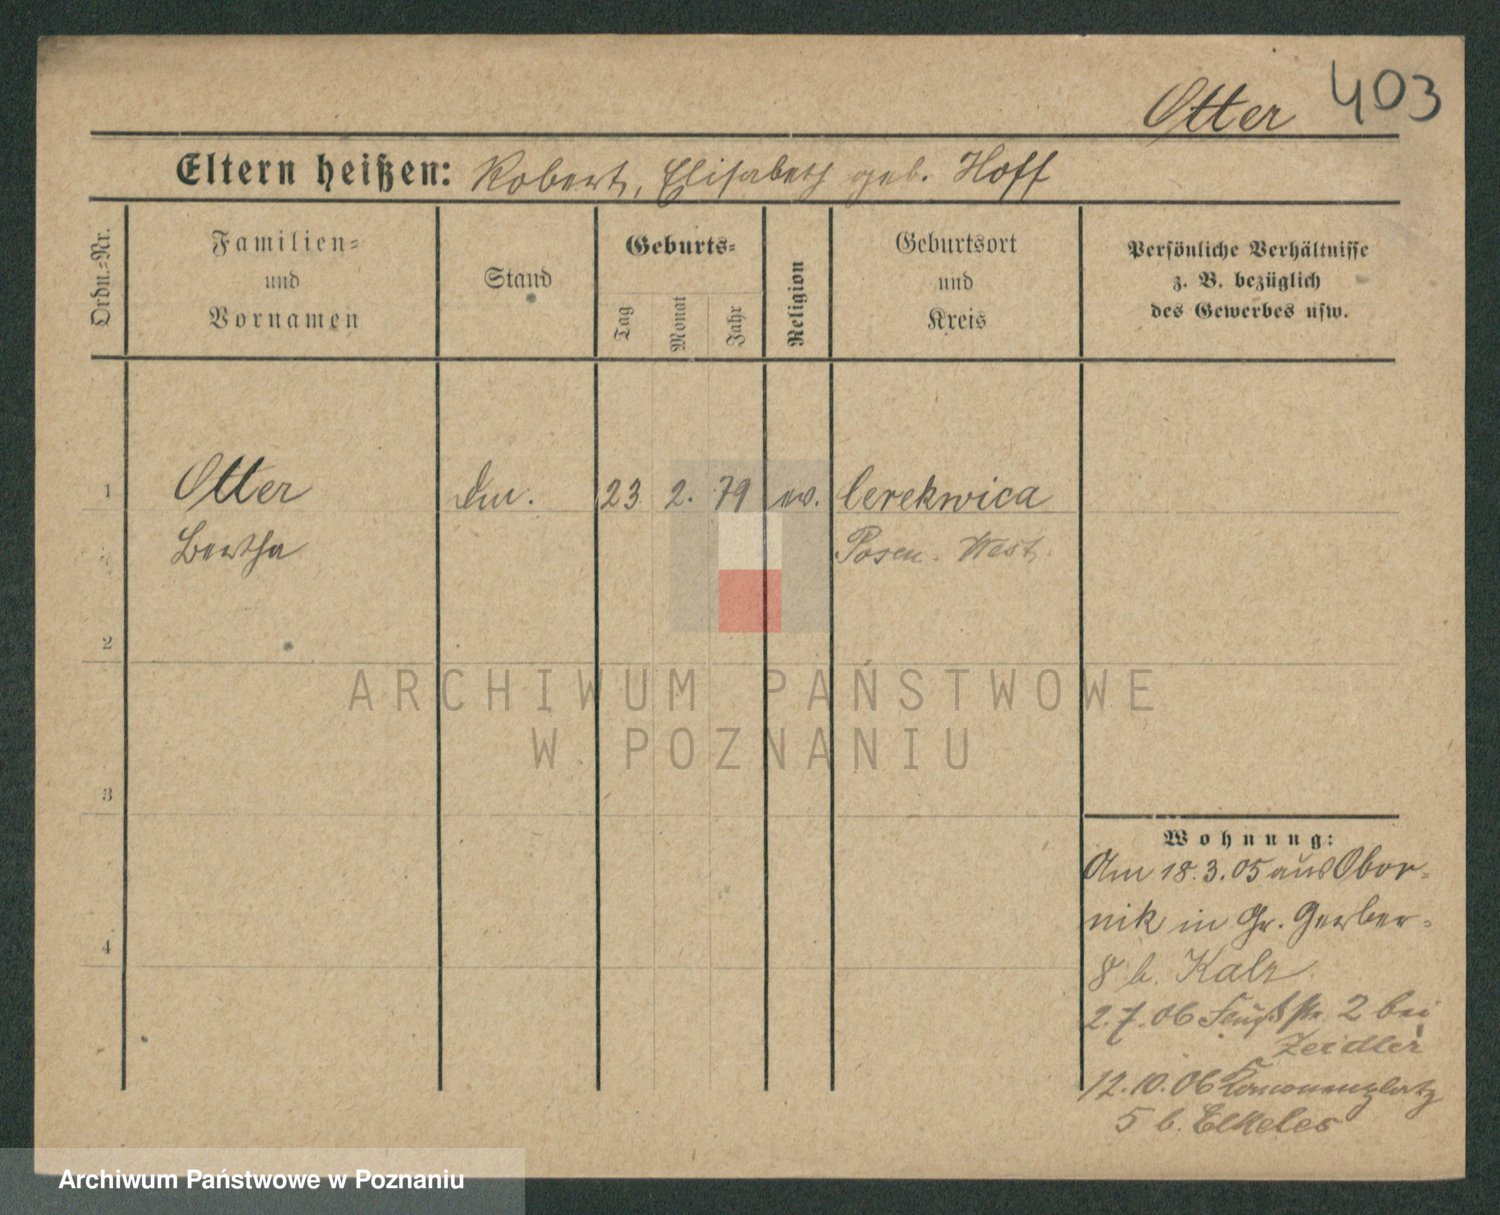 403
Otter
Eltern heißen: Robert, Elisabeth geb. Hoff
Ordn.=Nr.
Familien=
und
Vornamen
Stand
Geburts=
Tag
Monat
Jahr
Religion
Geburtsort
und
Kreis
Persönliche Verhältnisse
z. B. bezüglich
des Gewerbes usw.
1 Otter 23 2. 79 ev. Cerekwica
Bertha Posen-West
2
ARCHIWUM PAŃSTWOWE
W POZNANIU
3
Wohnung:
Am 18.3.05 aus Obor-
4
nik in Gr. Gerber-
8 b. Kalz
2.7.06 2 bei
Zeidler
12.10.06 Kanonenplatz
5 b. Elkeles
Archiwum Państwowe w Poznaniu